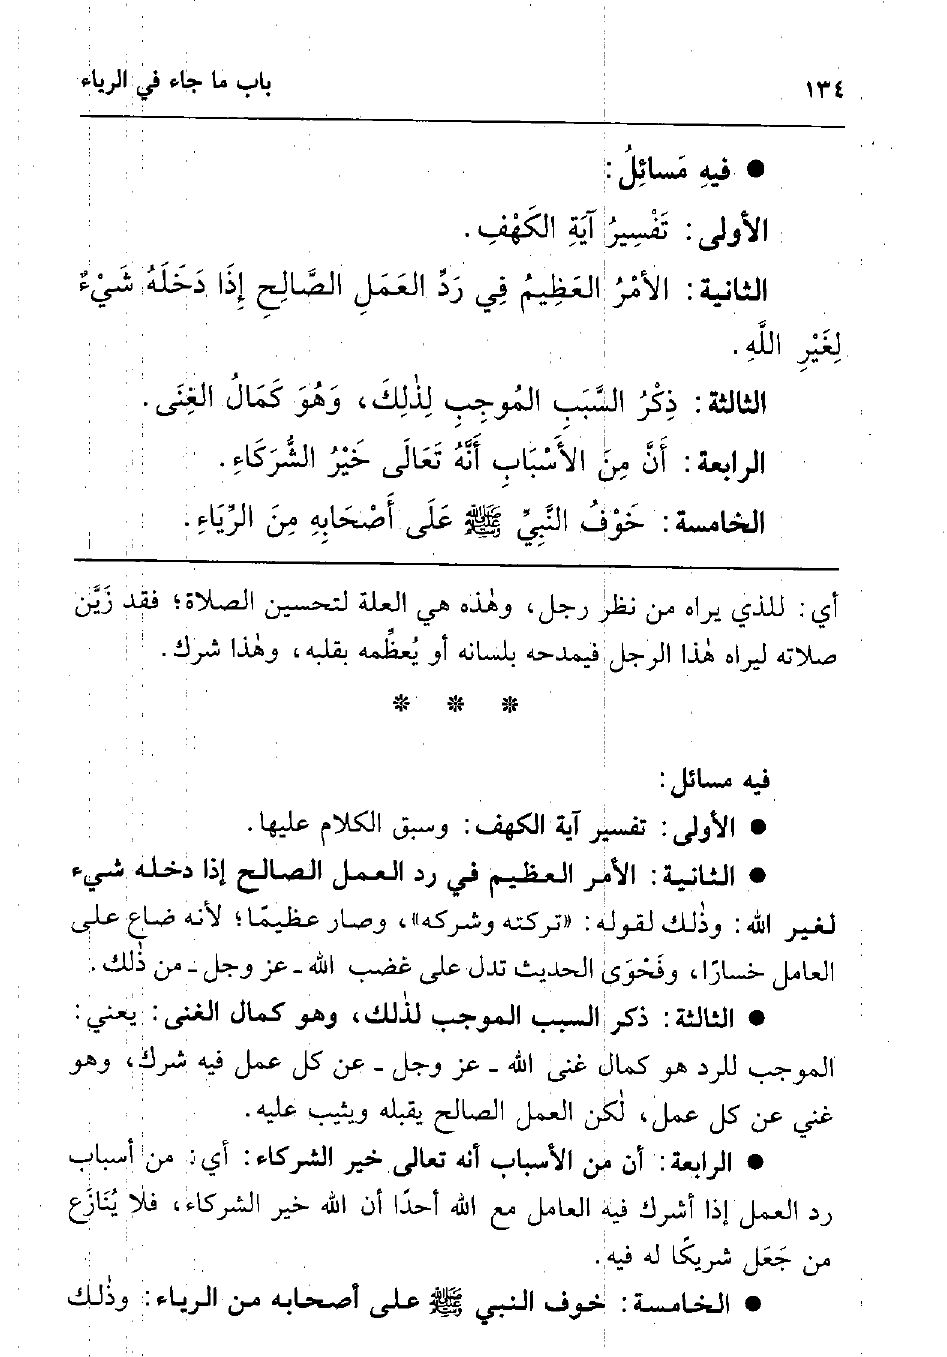 ١٣٤ باب ما جاء في الرياء
● فيهِ مَسائِلُ:
الأولى: تَفْسِيرُ آيَةِ الكَهْفِ.
الثانية: الأمْرُ العَظِيمُ فِي رَدِّ العَمَلِ الصَّالِحِ إِذَا دَخَلَهُ شَيْءٌ
لِغَيْرِ اللَّهِ.
الثالثة: ذِكْرُ السَّبَبِ المُوجِبِ لِذٰلِكَ، وَهُوَ كَمَالُ الغِنَى.
الرابعة: أَنَّ مِنَ الأسْبَابِ أَنَّهُ تَعَالَى خَيْرُ الشُّرَكَاءِ.
الخامسة: خَوْفُ النَّبِيِّ ﷺ عَلَى أَصْحَابِهِ مِنَ الرِّيَاءِ.
أي: للذي يراه من نظر رجل، وهٰذه هي العلة لتحسين الصلاة؛ فقد زَيَّن
صلاته ليراه هٰذا الرجل فيمدحه بلسانه أو يُعظِّمه بقلبه، وهٰذا شرك.
* * *
فيه مسائل:
● الأولى: تفسير آية الكهف: وسبق الكلام عليها.
● الثانية: الأمر العظيم في رد العمل الصالح إذا دخله شيء
لغير الله: وذٰلك لقوله: «تركته وشركه»، وصار عظيمًا؛ لأنه ضاع على
العامل خسارًا، وفَحْوَى الحديث تدل على غضب الله ـ عز وجل ـ من ذٰلك.
● الثالثة: ذكر السبب الموجب لذٰلك، وهو كمال الغنى: يعني:
الموجب للرد هو كمال غنى الله ـ عز وجل ـ عن كل عمل فيه شرك، وهو
غني عن كل عمل، لٰكن العمل الصالح يقبله ويثيب عليه.
● الرابعة: أن من الأسباب أنه تعالى خير الشركاء: أي: من أسباب
رد العمل إذا أشرك فيه العامل مع الله أحدًا أن الله خير الشركاء، فلا يُنَازَع
من جَعَل شريكًا له فيه.
● الخامسة: خوف النبي ﷺ على أصحابه من الرياء: وذٰلك